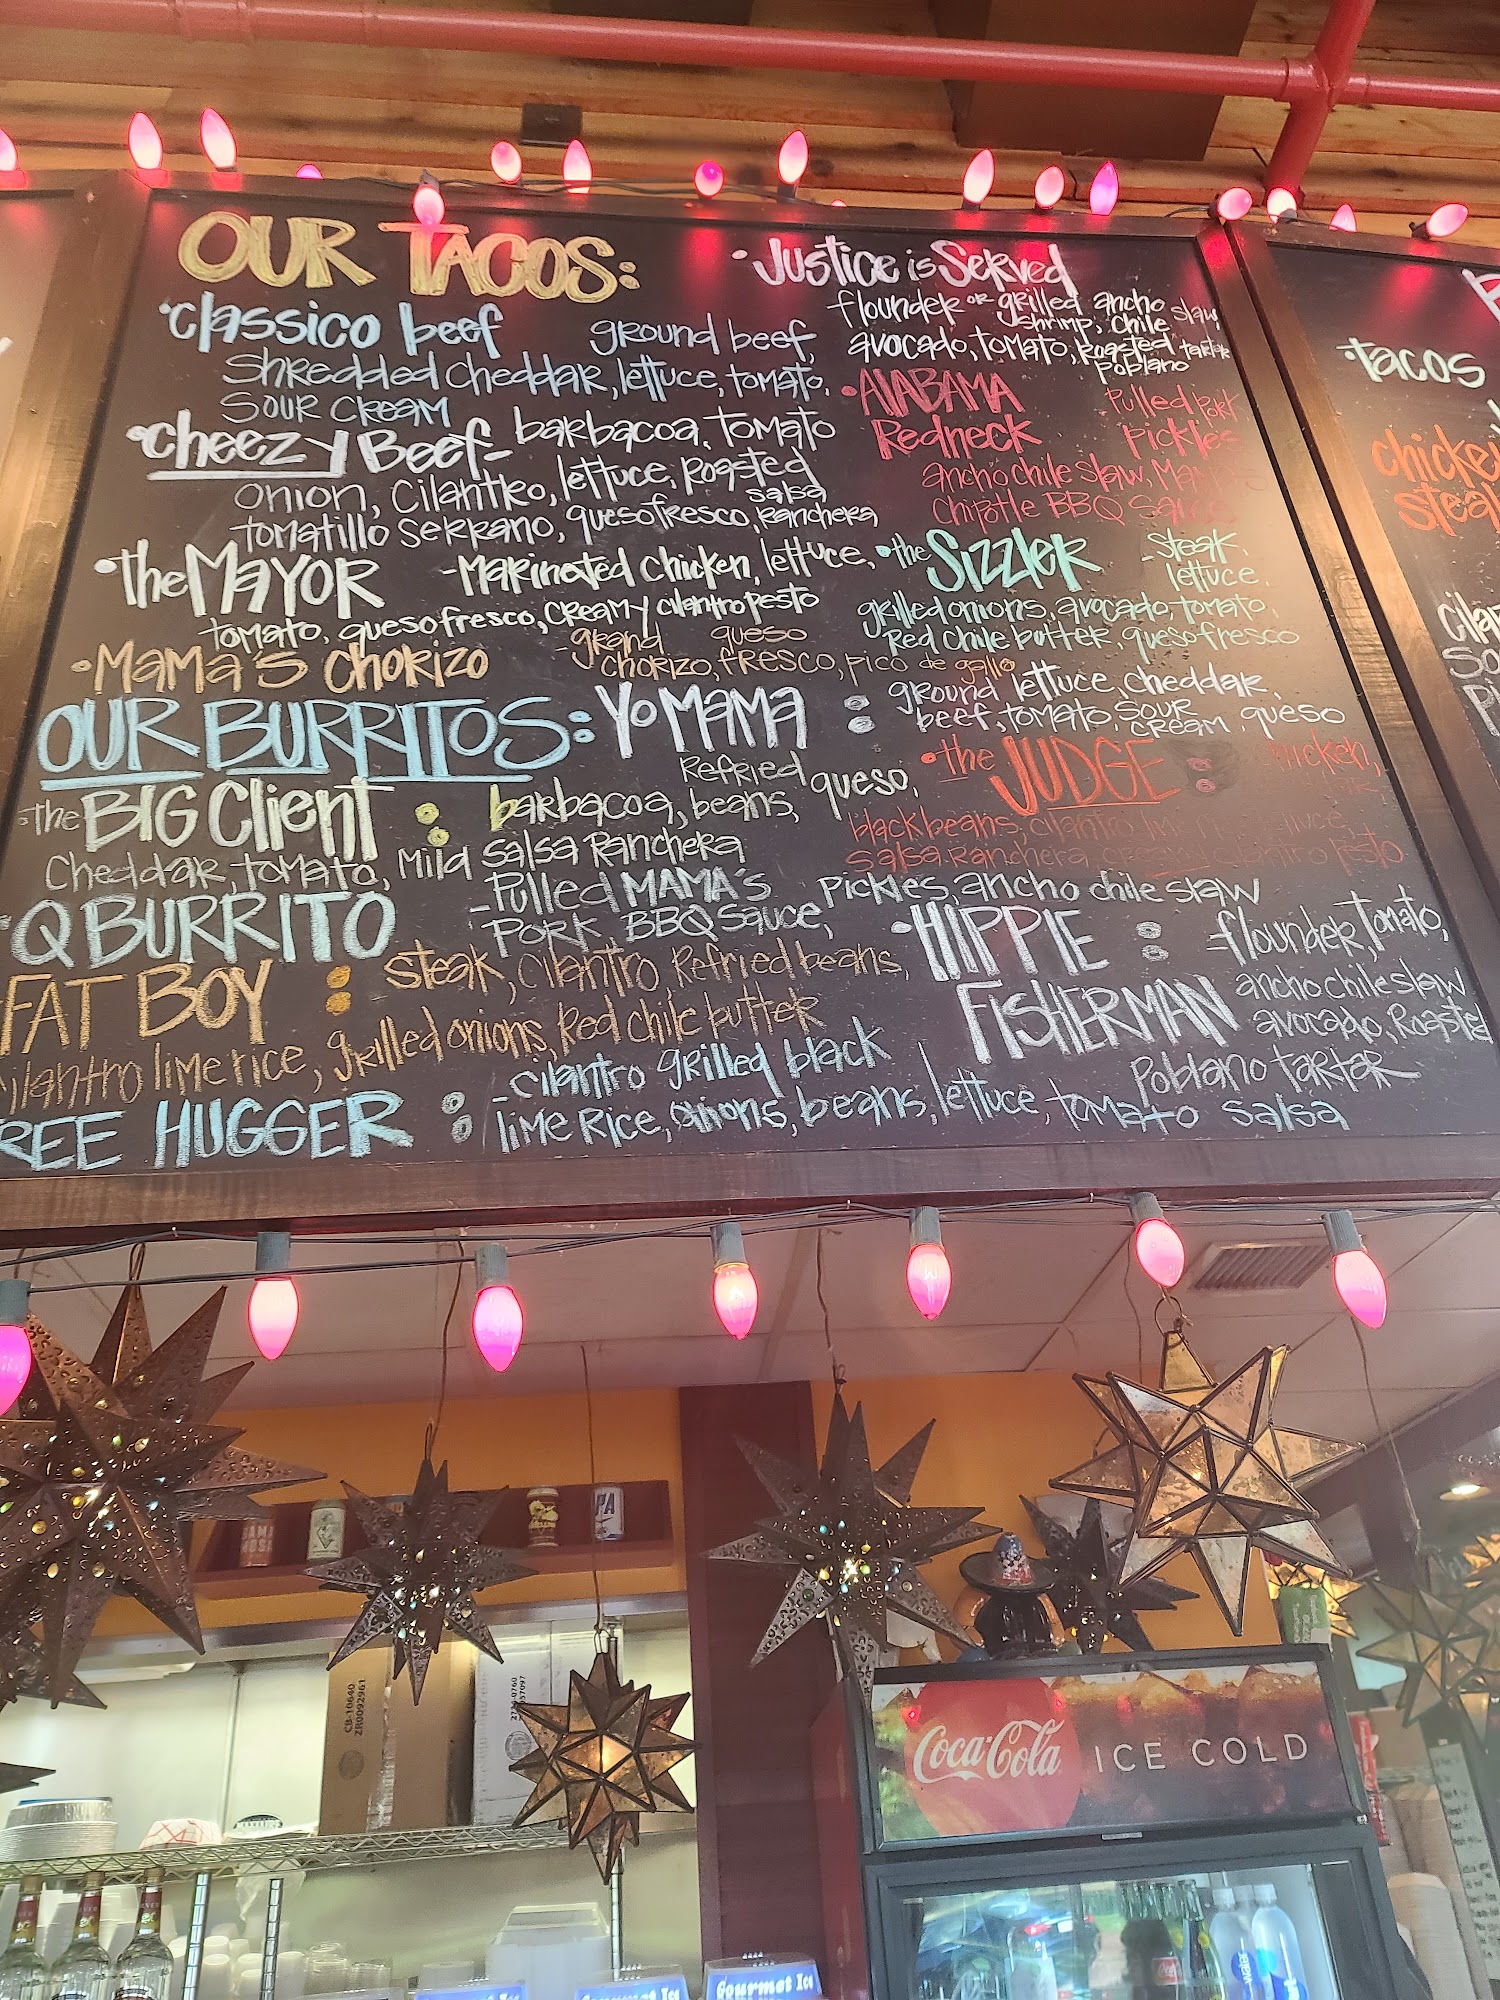 OUR TACOS:
•Classico beef ground beef,
Shredded Cheddar, lettuce, tomato,
Sour Cream
•Cheezy Beef- barbacoa, tomato
onion, Cilantro, lettuce, Roasted
tomatillo Serrano, quesofresco, Ranchera salsa
•the MAYOR -Marinated chicken, lettuce,
tomato, quesofresco, creamy cilantro pesto
•Mama's Chorizo -grand queso
chorizo, fresco, pico de gallo
•Justice is Served
flounder or grilled ancho
shrimp, Chile slaw,
avocado, tomato, Roasted
poblano tartar
•Alabama Pulled Pork
Redneck Pickles
ancho chile slaw,
Chipotle BBQ
•the Sizzler -Steak,
lettuce,
grilled onions, avocado, tomato,
Red Chile butter, quesofresco
OUR BURRITOS:
YO MAMA : ground lettuce, cheddar,
beef, tomato, sour
cream, queso
the BIG Client : barbacoa, Refried
beans, queso,
Cheddar, tomato, Mild Salsa Ranchera
•the JUDGE :
black beans,
Salsa Ranchera, pesto
•Q BURRITO -Pulled MAMA'S Pickles, ancho chile slaw
Pork BBQ Sauce,
FAT BOY : steak, cilantro, Refried beans,
cilantro lime rice, grilled onions, Red chile butter
•HIPPIE : -flounder, tomato,
FISHERMAN ancho chile slaw
avocado, Roasted
Poblano tartar
REE HUGGER : -cilantro grilled black
lime Rice, onions, beans, lettuce, tomato salsa
tacos
chicken
steak
CB-10640
ZR0092961
PA
Coca-Cola ICE COLD
Gourmet Ice